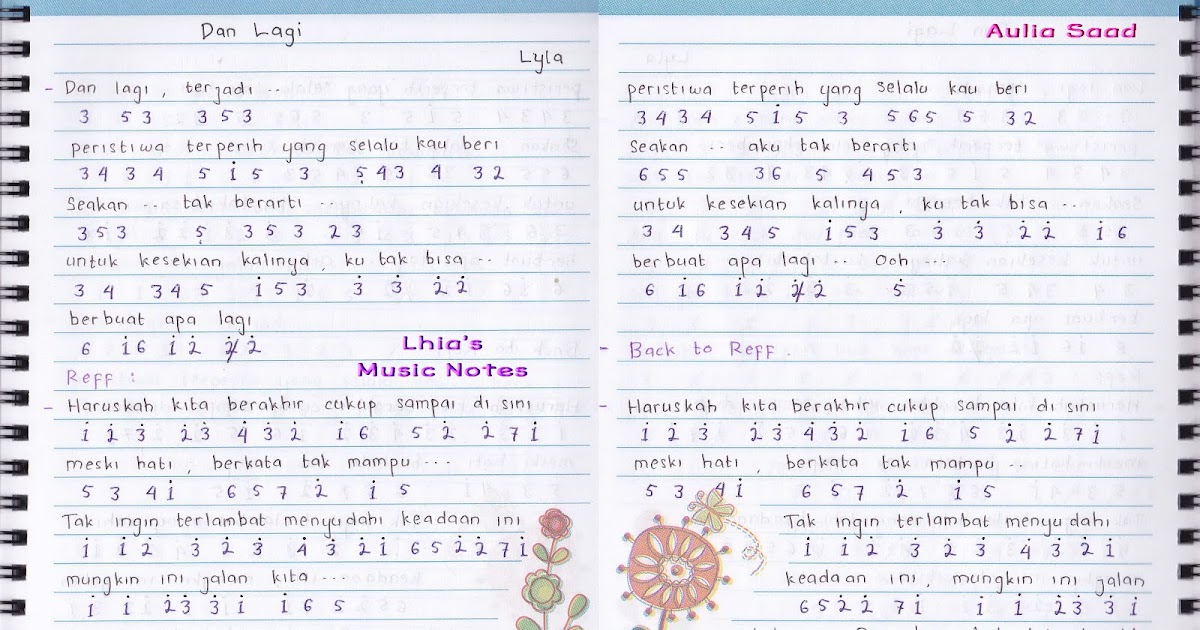 Dan Lagi
Lyla
- Dan lagi, terjadi ..
3 5 3 3 5 3
peristiwa terperih yang selalu kau beri
3 4 3 4 5 i 5 3 5̣ 4 3 4 3 2
Seakan .. tak berarti ..
3 5 3 5̣ 3 5 3 2 3
untuk kesekian kalinya, ku tak bisa ..
3 4 3 4 5 i 5 3 3̇ 3̇ 2̇ 2̇
berbuat apa lagi
6 i 6 i 2̇ 2̇ 2̇
Lhia's
Music Notes
Reff :
- Haruskah kita berakhir cukup sampai di sini
i 2̇ 3̇ 2̇ 3̇ 4̇ 3̇ 2̇ i 6 5 2̇ 2̇ 7 i
meski hati, berkata tak mampu ...
5 3 4 i 6 5 7 2̇ i 5
Tak ingin terlambat menyudahi keadaan ini
i i 2̇ 3̇ 2̇ 3̇ 4̇ 3̇ 2̇ i 6 5 2̇ 2̇ 7 i
mungkin ini jalan kita ....
i i 2̇ 3̇ 3̇ i i 6 5
Aulia Saad
peristiwa terperih yang selalu kau beri
3 4 3 4 5 i 5 3 5 6 5 5 3 2
Seakan .. aku tak berarti
6 5 5 3 6 5 4 5 3
untuk kesekian kalinya, ku tak bisa ..
3 4 3 4 5 i 5 3 3̇ 3̇ 2̇ 2̇ i 6
berbuat apa lagi ... Ooh ...
6 i 6 i 2̇ 2̇ 2̇ 5̇
- Back to Reff .
- Haruskah kita berakhir cukup sampai di sini
i 2̇ 3̇ 2̇ 3̇ 4̇ 3̇ 2̇ i 6 5 2̇ 2̇ 7 i
meski hati, berkata tak mampu ..
5 3 4 i 6 5 7 2̇ i 5
Tak ingin terlambat menyudahi
i i 2̇ 3̇ 2̇ 3̇ 4̇ 3̇ 2̇ i
keadaan ini, mungkin ini jalan
6 5 2̇ 2̇ 7 i i i 2̇ 3̇ 3̇ i